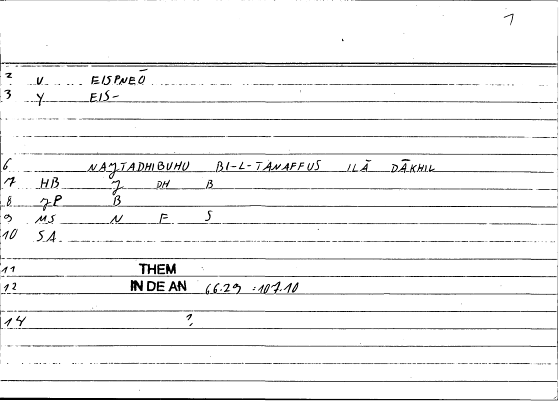 1
2 V EISPNEŌ
3 Y EIS-
6 NAJTADHIBUHU BI-L-TANAFFUS ILĀ DĀKHIL
7 HB J DH B
8 JP B
9 MS N F S
10 SA
11 THEM
12 IN DE AN 66.29 =107.10
14